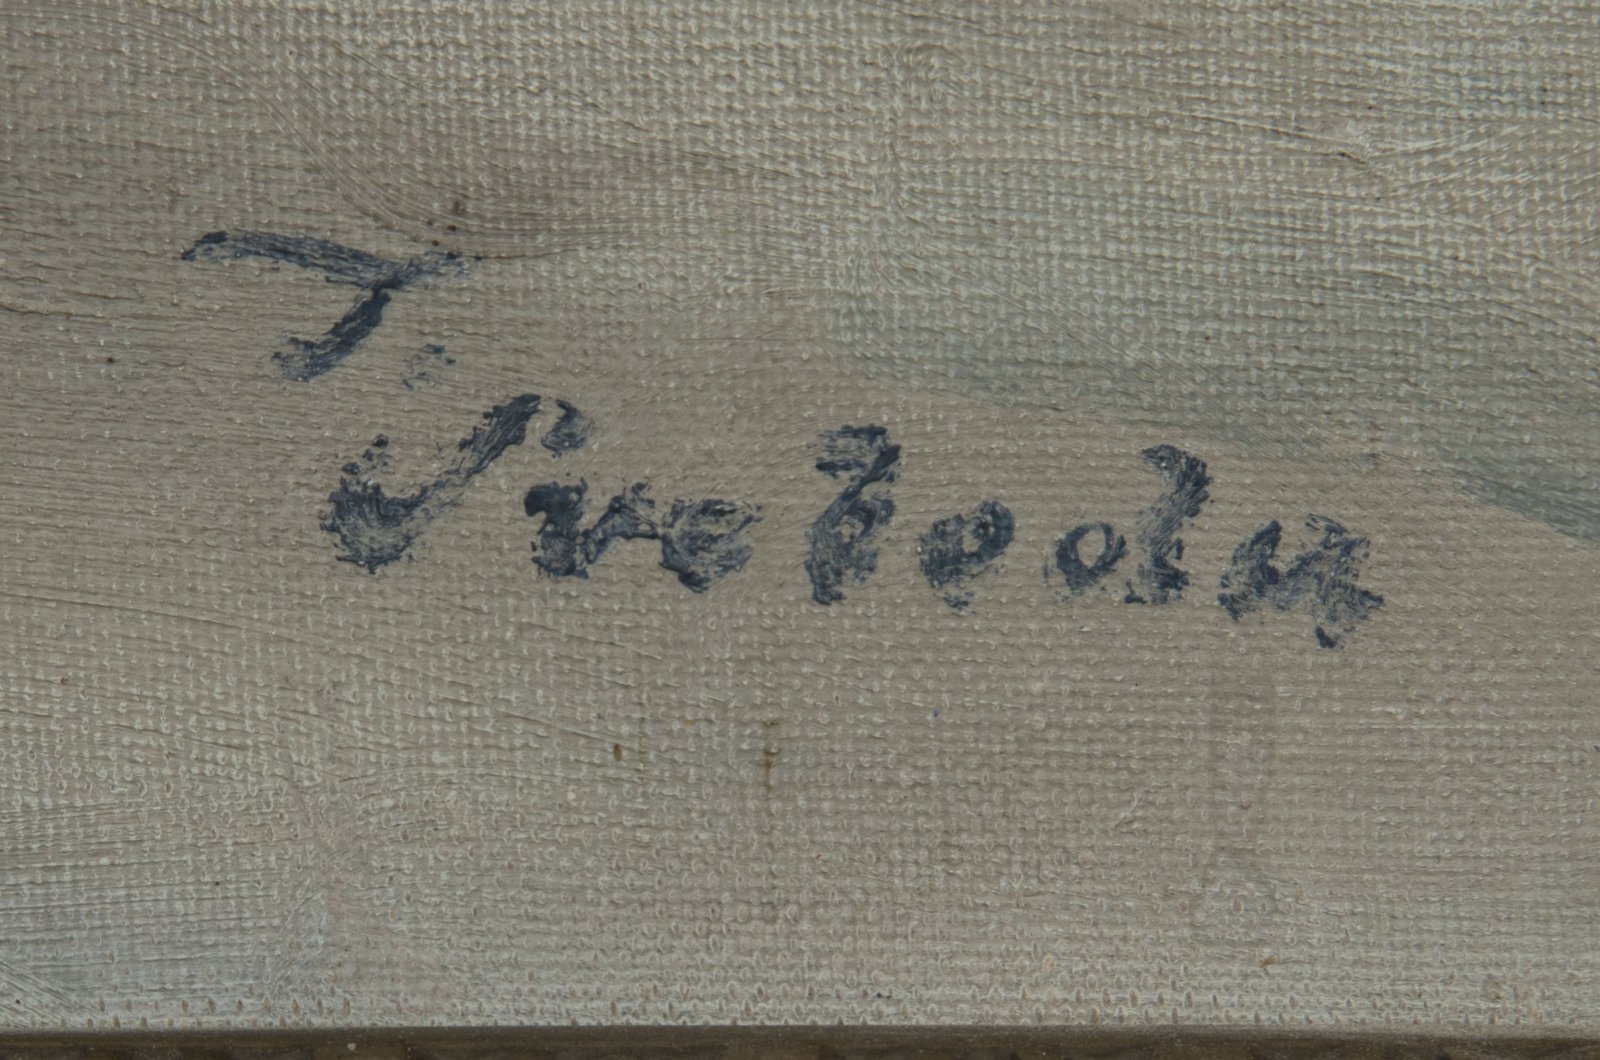 J.
Svoboda